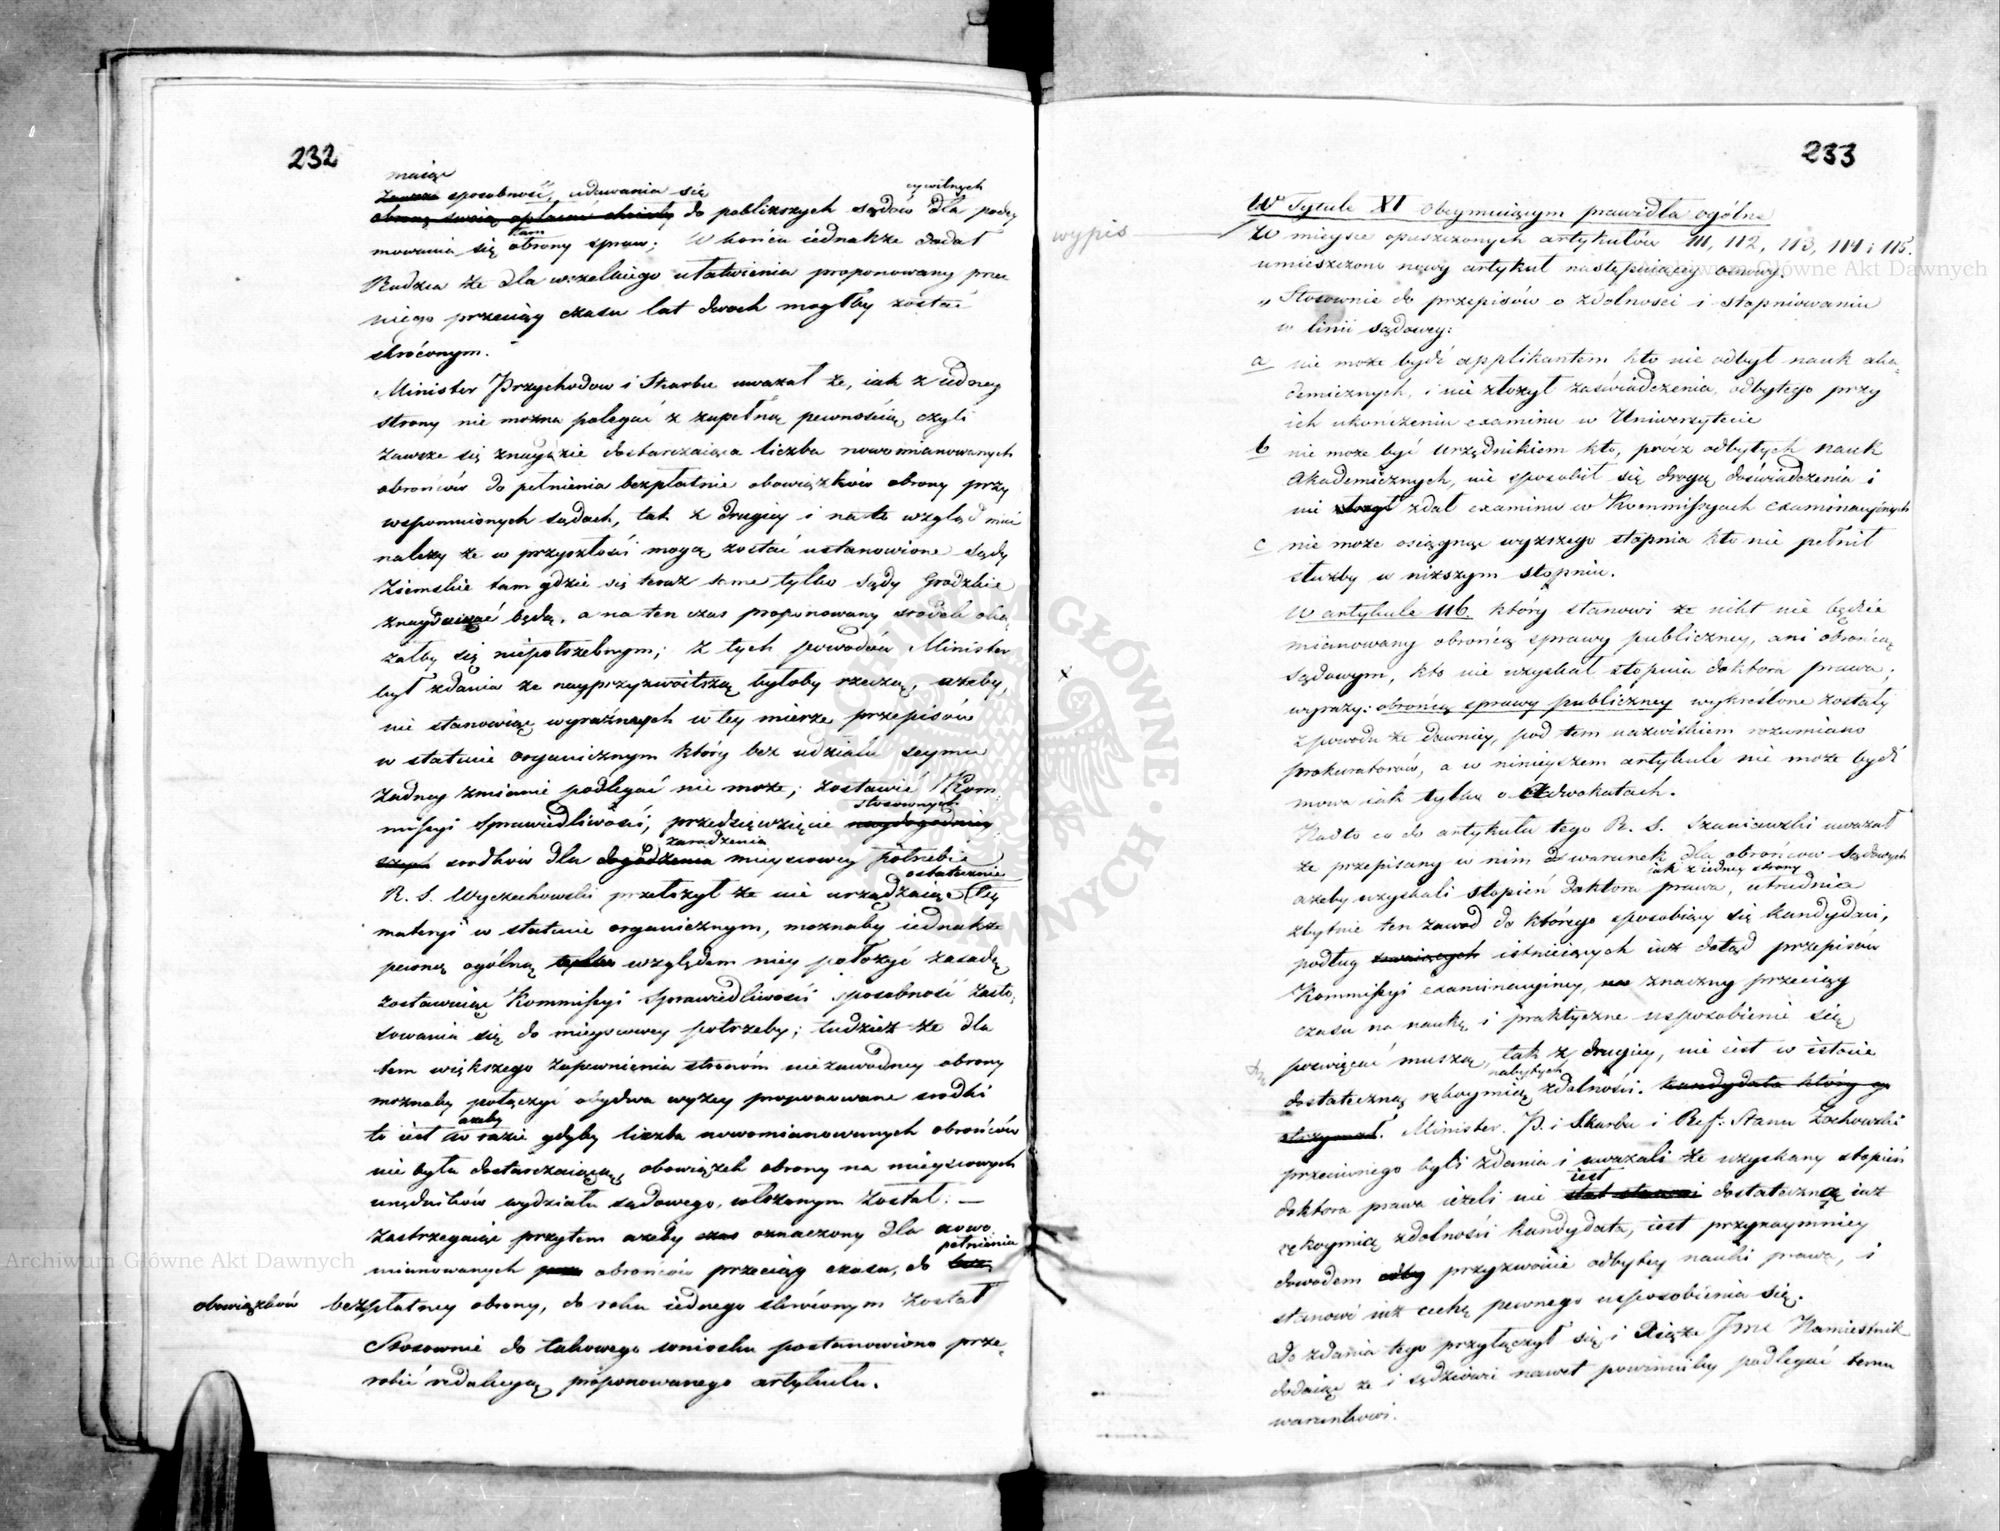 232
maiąc
zawsze sposobność udawania się cywilnych
obronę swoią opłacać chciały do pobliższych sądów dla podey
mowania się tam obrony spraw; W końcu iednakże dodał
Radzca że dla wszelkiego ułatwienia proponowany prze
niego przeciąg czasu lat dwóch mógłby zostać
skróconym.
Minister Przychodow i Skarbu uważał że, iak z iedney
strony nie można polegać z zupełną pewnością, czyli
zawsze się znaydzie dostarczaiąca liczba nowomianowanych
obrońców do pełnienia bezpłatnie obowiązków obrony przy
wspomnionych sądach, tak z drugiey i na to wzgląd mieć
należy że w przyszłości mogą zostać ustanowione sądy
Ziemskie tam gdzie się teraz same tylko sądy Grodzkie
znaydować będą, a na ten czas proponowany srodek oka
załby się niepotrzebnym; z tych powodów Minister
był zdania że nayprzyzwoitszą byłoby rzeczą, ażeby,
nie stanowiąc wyraźnych w tey mierze przepisów
w statucie organicznym który bez udziału seymu
żadney zmianie podlegać nie może; zostawić Kom
missyi Sprawiedliwości, przedsięwzięcie stosownych naydogodniey
szych srodków dla zaradzenia dogodzenia mieyscowey potrzebie
R. S. Wyczechowski przełożył że nie urządzaiąc ostatecznie tey
materyi w statucie organicznym, możnaby iednakże
pewną ogólną tylko względem niey położyć zasadę,
zostawuiąc Kommissyi Sprawiedliwości sposobność zasto
sowania się do mieyscowey potrzeby; tudzież że dla
tem większego zapewnienia stronom niezawodney obrony
możnaby połączyć obydwa wyżey proponowane srodki
to iest ażeby w razie gdyby liczba nowomianowanych obrońców
nie była dostarczaiącą, obowiązek obrony na mieyscowych
urzędników wydziału sądowego, włożonym został. —
zastrzegaiąc przytem ażeby czas oznaczony dla nowo
mianowanych obrońców przeciąg czasu, do pełnienia
obowiązków bezpłatney obrony, do roku iednego skróconym został
Stosownie do takowego wniosku postanowiono prze
robić redakcyą proponowanego artykułu.
233
wypis
W Tytule XI obeymuiącym prawidła ogólne
W mieysce opuszczonych artykułów 111, 112, 113, 114 i 115.
umieszczono nowy artykuł następuiącey osnowy.
„ Stosownie do przepisów o zdolności i stopniowaniu
w linii sądowey:
a nie może bydź applikantem kto nie odbył nauk aka
demicznych, i nie złożył zaświadczenia, odbytego przy
ich ukończeniu examinu w Uniwersytecie
b nie może być urzędnikiem kto, prócz odbytych nauk
Akademicznych, nie sposobił się drogą doświadczenia i
nie złożył zdał examinu w Kommissyach examinacyinych
c nie może osiągnąć wyższego stopnia kto nie pełnił
służby w niższym stopniu.
W artykule 116. który stanowi że nikt nie będzie
mianowany obrońcą sprawy publiczney, ani obrońcą
sądowym, kto nie uzyskał stopnia doktora prawa;
wyrazy: obrońcą sprawy publiczney wykreślone zostały
z powodu że dawniey, pod tem nazwiskiem rozumiano
prokuratorów, a w ninieyszem artykule nie może bydź
mowa iak tylko o Adwokatach.
Nadto co do artykułu tego R. S. Szaniawski uważał
że przepisany w nim warunek dla obrońców sądowych
ażeby uzyskali stopień doktora prawa, iak z iedney strony utrudnia
zbytnie ten zawód do którego sposobiący się kandydaci,
podług istnieiących iuż dotąd przepisów
Kommissyi examinacyiney, znaczny przeciąg
czasu na naukę i praktyczne usposobienie się
poświęcać muszą, tak z drugiey, nie iest w istocie
dostateczną rękoymią nabytych zdolności. kandydata który go
otrzymał. Minister P. i Skarbu i Ref: Stanu Zochowski
przeciwnego byli zdania i uważali że uzyskany stopień
doktora prawa ieżeli nie iest dostateczną iuż
rękoymią zdolności kandydata, iest przynaymniey
dowodem przyzwoicie odbytey nauki prawa, i
stanowi iuż cechę pewnego usposobienia się.
Do zdania tego przyłączył się i Xiąże Jmć Namiestnik
dodaiąc że i sędziowie nawet powinniby podlegać temu
warunkowi.
Archiwum Główne Akt Dawnych
Archiwum Główne Akt Dawnych
ARCHIWUM GŁÓWNE AKT DAWNYCH